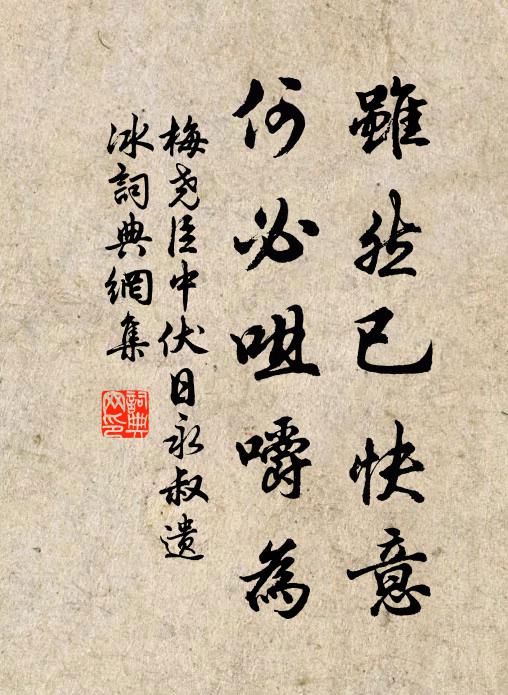 雖然已快意
何必咀嚼為
梅堯臣中伏日永叔遺
冰詞典網集
詞典
网印